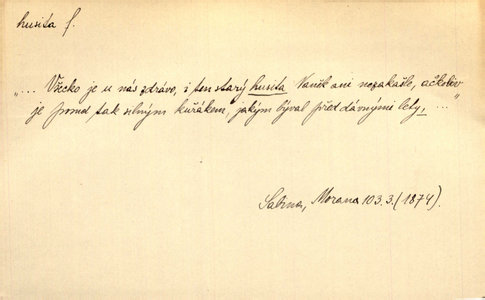 husita f.
"... Všecko je u nás zdrávo, i ten starý husita Vaněk ani nezakašle, ačkoliv
je pořád tak silným kuřákem, jakým býval před dávnými lety, ..."
Sabina, Morana 103.3. (1874).